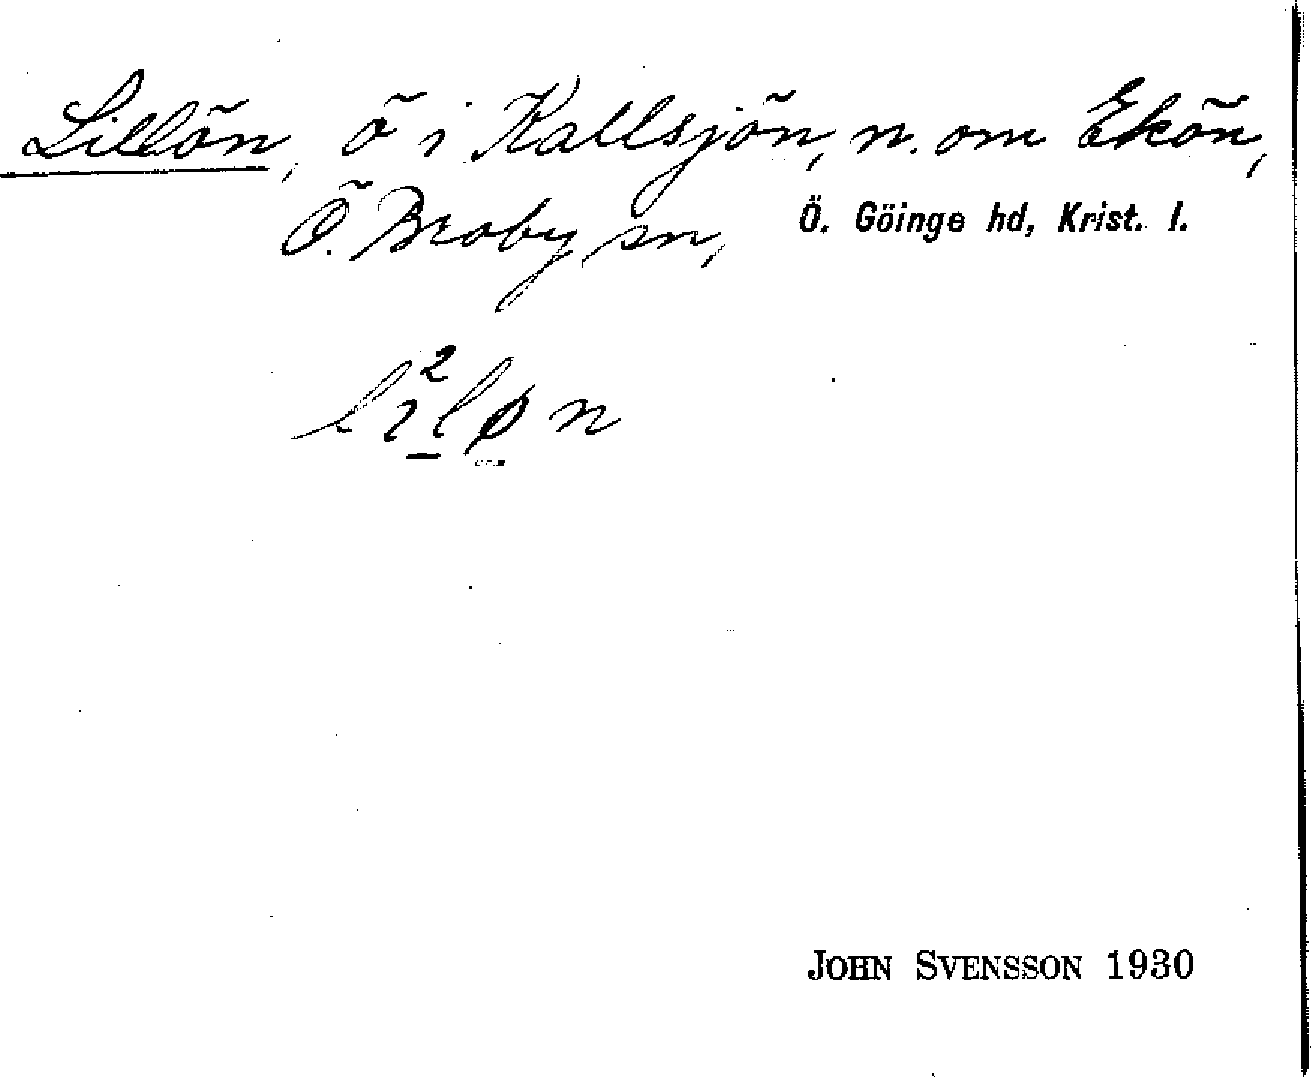 Lillön, ö i Kallsjön, n. om Ekön,
Ö. Broby sn, Ö. Göinge hd, Krist. l.
li²løn
JOHN SVENSSON 1930